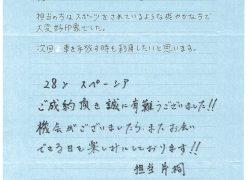 担当の方はスポーツをされているような爽やかな方で
大変好印象でした。
次回、車を手放す時も利用したいと思います。
28y スペーシア
ご成約頂き誠に有難うございました!!
機会がございましたら、またお会い
できる日を楽しみにしております!!
担当 片桐